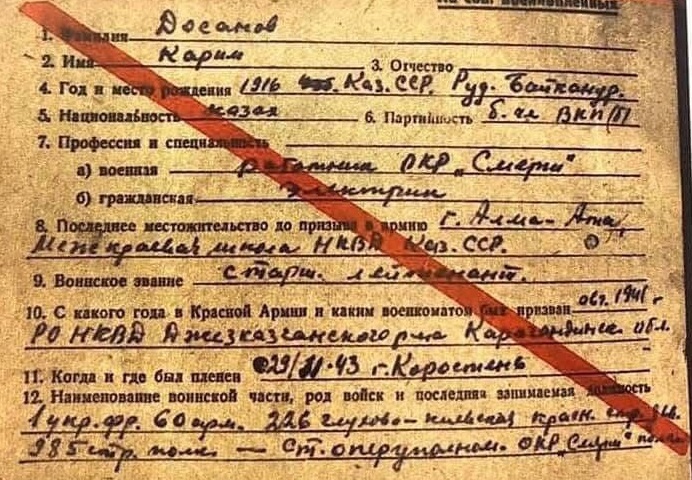 на сов. военнопленных
1. Фамилия Досанов
2. Имя Карим 3. Отчество
4. Год и место рождения 1916 Каз.ССР. Руд. Байканур.
5. Национальность казах 6. Партийность б. чл ВКП/б/
7. Профессия и специальность
а) военная работник ОКР „Смерш"
б) гражданская электрик
8. Последнее местожительство до призыва в армию г. Алма-Ата,
Межкраевая школа НКВД Каз. ССР.
9. Воинское звание старш. лейтенант.
10. С какого года в Красной Армии и каким военкоматом был призван авг. 1941 г
РО НКВД Джезказганского р-на Карагандинск. обл.
11. Когда и где был пленен 29/11-43 г. Коростень
12. Наименование воинской части, род войск и последняя занимаемая должность
1 укр. фр. 60 арм. 226 глухово-киевская красн. стр. див.
985 стр. полк — ст. оперуполном. ОКР „Смерш"